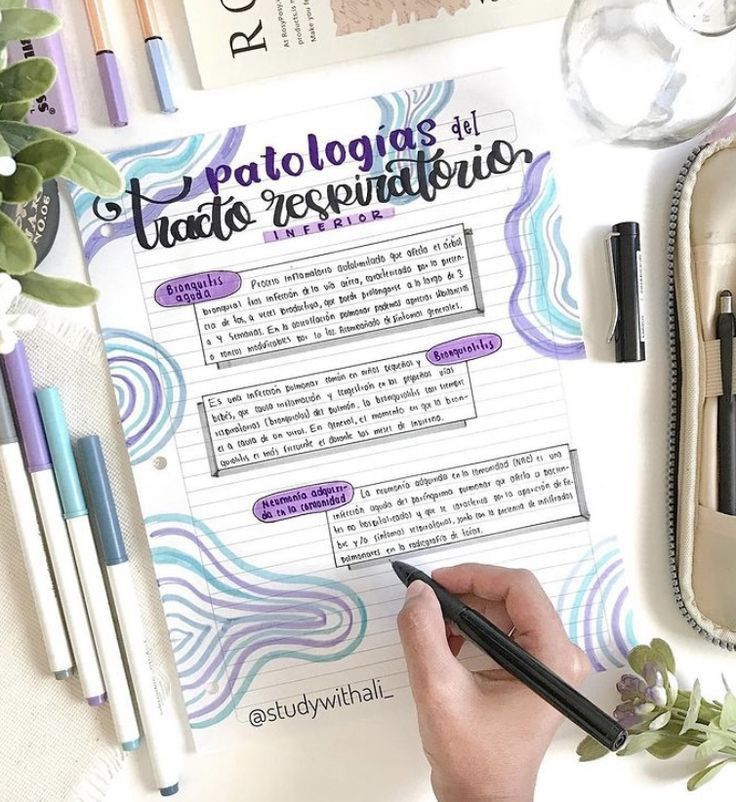 RO
At RosyPosy
Make you fee
NO.06
Patologías del
tracto respiratorio
INFERIOR
Bronquitis
aguda
Proceso inflamatorio autolimitado que afecta el árbol
bronquial tras infección de la vía aérea, caracterizado por la presen-
cia de tos, a veces productiva, que puede prolongarse a lo largo de 3
a 4 semanas. En la auscultación pulmonar podemos apreciar sibilancias
o roncus modificables por la tos. Acompañado de síntomas generales.
Bronquiolitis
Es una infección pulmonar común en niños pequeños y
bebés, que causa inflamación y congestión en las pequeñas vías
respiratorias (bronquiolos) del pulmón. La bronquiolitis casi siempre
es a causa de un virus. En general, el momento en que la bron-
quiolitis es más frecuente es durante los meses de invierno.
Neumonía adquiri-
da en la comunidad
La neumonía adquirida en la comunidad (NAC) es una
infección aguda del parénquima pulmonar que afecta a pacien-
tes no hospitalizados y que se caracteriza por la aparición de fie-
bre y/o síntomas respiratorios, junto con la presencia de infiltrados
pulmonares en la radiografía de tórax.
@studywithali_